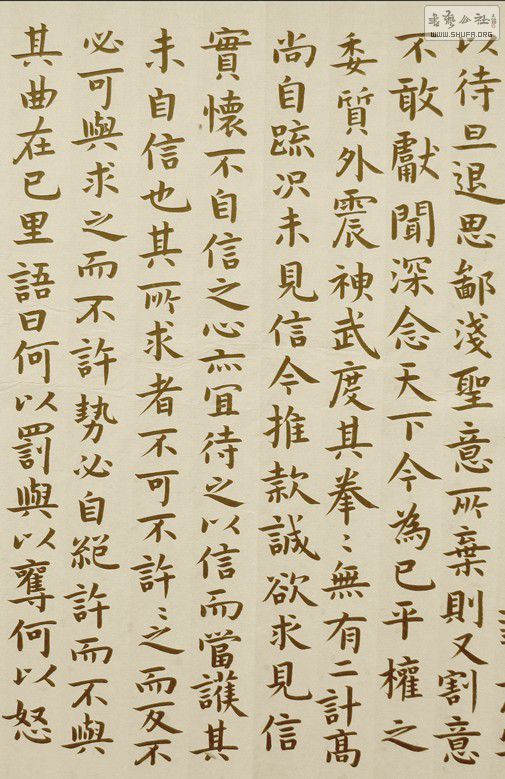 以待旦退思鄙淺聖意所棄則又割意
不敢獻聞深念天下今為已平權之
委質外震神武度其拳〻無有二計高
尚自疏况未見信今推款誠欲求見信
實懷不自信之心亦宜待之以信而當護其
未自信也其所求者不可不許〻之而反不
必可與求之而不許勢必自絕許而不與
其曲在已里語曰何以罰與以奪何以怒
書藝公社
WWW.SHUFA.ORG